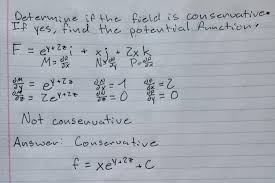 Determine if the field is conservative.
If yes, find the potential function.
F = e^{y+2z} i + x j + 2x k
M = ∂f/∂x N = ∂f/∂y P = ∂f/∂z
∂M/∂y = e^{y+2z} ∂N/∂x = 1 ∂P/∂x = 2
∂M/∂z = 2e^{y+2z} ∂N/∂z = 0 ∂P/∂y = 0
Not conservative
Answer: Conservative
f = xe^{y+2z} + C